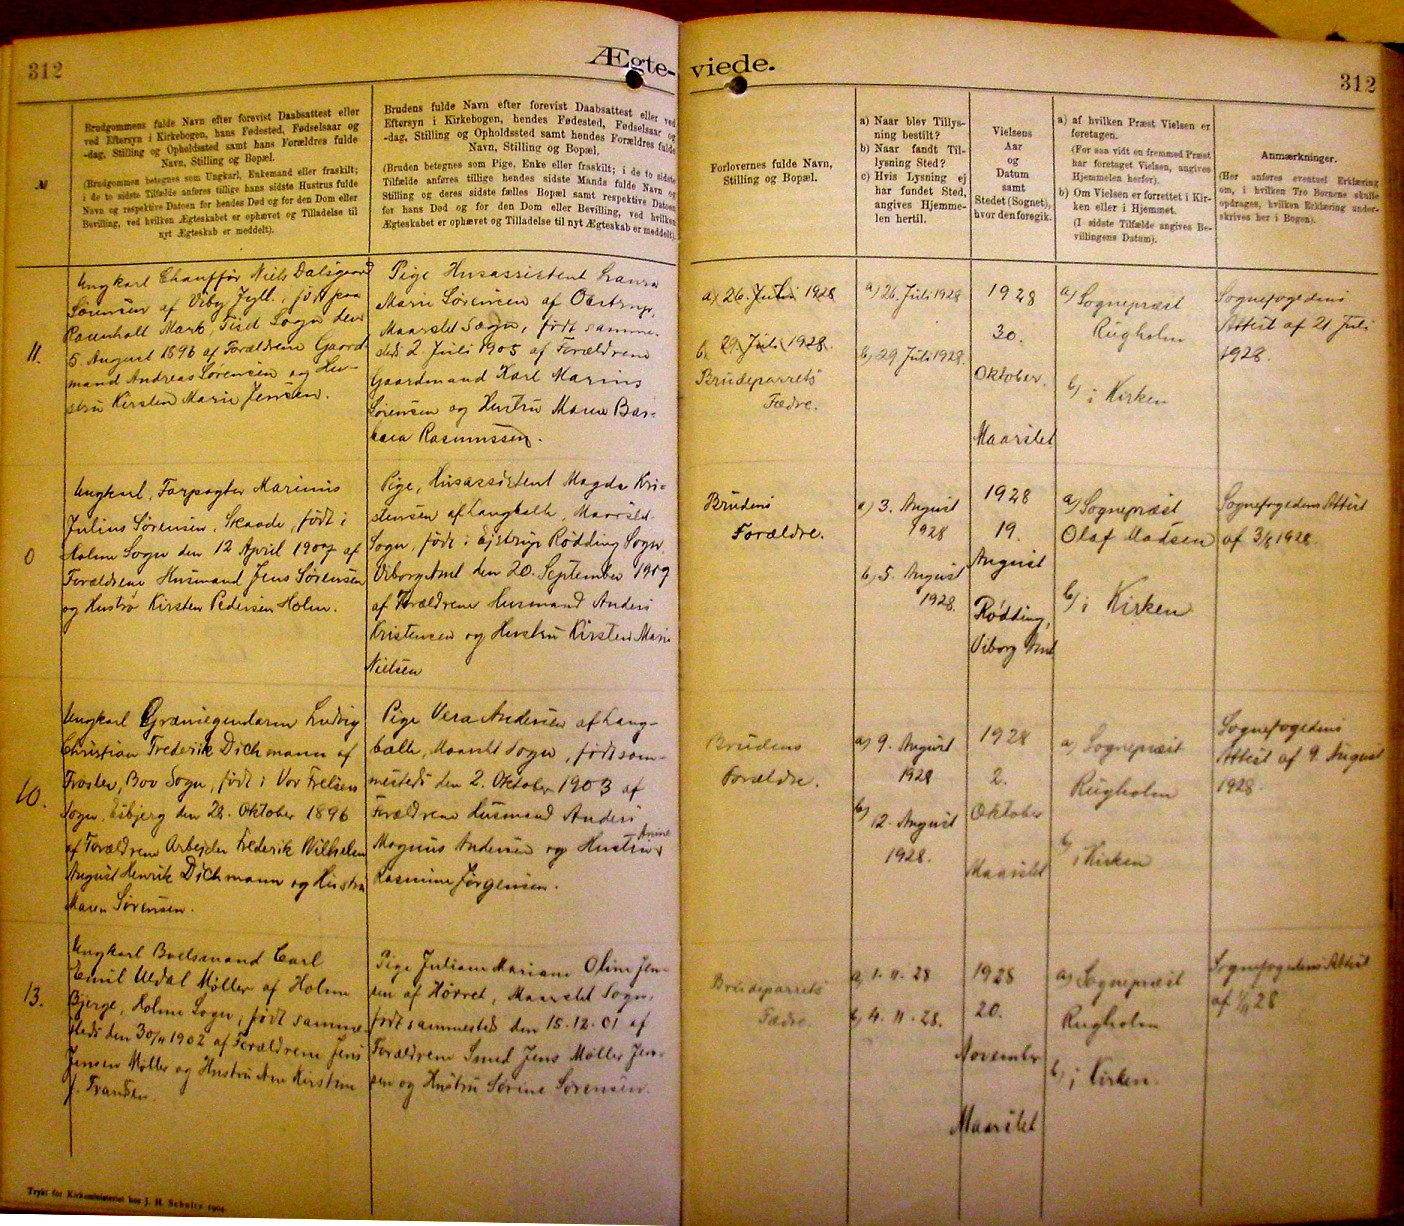 312
Ægte-
viede.
312
№
Brudgommens fulde Navn efter forevist Daabsattest eller
ved Eftersyn i Kirkebogen, hans Fødested, Fødselsaar og
-dag, Stilling og Opholdssted samt hans Forældres fulde
Navn, Stilling og Bopæl.
(Brudgommen betegnes som Ungkarl, Enkemand eller fraskilt;
i de to sidste Tilfælde anføres tillige hans sidste Hustrus fulde
Navn og respektive Datoen for hendes Død og for den Dom eller
Bevilling, ved hvilken Ægteskabet er ophævet og Tilladelse til
nyt Ægteskab er meddelt).
Brudens fulde Navn efter forevist Daabsattest eller ved
Eftersyn i Kirkebogen, hendes Fødested, Fødselsaar og
-dag, Stilling og Opholdssted samt hendes Forældres fulde
Navn, Stilling og Bopæl.
(Bruden betegnes som Pige, Enke eller fraskilt; i de to sidste
Tilfælde anføres tillige hendes sidste Mands fulde Navn og
Stilling og deres sidste fælles Bopæl samt respektive Datoen
for hans Død og for den Dom eller Bevilling, ved hvilken
Ægteskabet er ophævet og Tilladelse til nyt Ægteskab er meddelt).
Forlovernes fulde Navn,
Stilling og Bopæl.
a) Naar blev Tillys-
ning bestilt?
b) Naar fandt Til-
lysning Sted?
c) Hvis Lysning ej
har fundet Sted,
angives Hjemme-
len hertil.
Vielsens
Aar
og
Datum
samt
Stedet (Sognet),
hvor den foregik.
a) af hvilken Præst Vielsen er
foretagen.
(For saa vidt en fremmed Præst
har foretaget Vielsen, angives
Hjemmelen herfor).
b) Om Vielsen er forrettet i Kir-
ken eller i Hjemmet.
(I sidste Tilfælde angives Be-
villingens Datum).
Anmærkninger.
(Her anføres eventuel Erklæring
om, i hvilken Tro Børnene skulle
opdrages, hvilken Erklæring under-
skrives her i Bogen).
11.
Ungkarl Chauffør Niels Dalsgaard
Sørensen af Viby Jyll., født paa
Mark Sogn den
5. August 1896 af Forældrene Gaard-
mand Andreas Sørensen og Hu-
stru Kirsten Marie Jensen.
Pige Husassistent Laura
Marie Sørensen af Obstrup,
Maarslet Sogn, født samme-
steds 2. Juli 1905 af Forældrene
Gaardmand Karl Marius
Sørensen og Hustru Maren Bar-
bara Rasmussen.
a) 26. Juli 1928
b, 29 Juli 1928.
Brudeparrets
Fædre.
a) 26. Juli 1928
b) 29 Juli 1928.
1928
30.
Oktober.
Maarslet
a) Sognepræst
Rugholm
b) i Kirken
Sognefogedens
Attest af 21 Juli
1928.
0
Ungkarl, Forpagter Marinus
Julius Sørensen, Skaade, født i
Holme Sogn den 12 April 1907 af
Forældrene Husmand Jens Sørensen
og Hustru Kirsten Pedersen Holm.
Pige, Husassistent Magda Kri-
stensen af Langballe, Maarslet
Sogn, født i Ejstrup Rødding Sogn
Viborg Amt den 20. September 1909
af Forældrene Husmand Anders
Kristensen og Hustru Kirsten Marie
Nielsen
Brudens
Forældre.
a) 3. August
1928
b) 5. August
1928.
1928
19.
August
Rødding,
Viborg Amt
a) Sognepræst
Olaf Madsen
b) i Kirken
Sognefogedens Attest
af 3/8 1928.
10.
Ungkarl Grænsegendarm Ludvig
Christian Frederik Dichmann af
Frøslev, Bov Sogn, født i Vor Frelsers
Sogn, Esbjerg den 28. Oktober 1896
af Forældrene Arbejder Frederik Wilhelm
August Henrik Dichmann og Hustru
Maren Sørensen.
Pige Vera Andersen af Lang-
balle, Maarslet Sogn, født sam-
mesteds den 2. Oktober 1903 af
Forældrene Husmand Anders
Magnus Andersen og Hustru Anine
Rasmine Jørgensen.
Brudens
Forældre.
a) 9. August
1928
b) 12. August
1928.
1928
2.
Oktober
Maarslet
a) Sognepræst
Rugholm
b) i Kirken
Sognefogedens
Attest af 9. August
1928.
13.
Ungkarl Boelsmand Carl
Emil Uldal Møller af Holme
Bjerge, Holme Sogn, født samme-
steds den 30/11 1902 af Forældrene Jens
Jensen Møller og Hustru Ane Kirstine
f. Frandsen.
Pige Juliane Mariane Oline Jen-
sen af Hørret, Maarslet Sogn,
født sammesteds den 15-12-01 af
Forældrene Smed Jens Møller Jen-
sen og Hustru Sørine Sørensen.
Brudeparrets
Fædre.
a) 1-11-28
b) 4-11-28.
1928
20.
November
Maarslet
a) Sognepræst
Rugholm
b) i Kirken.
Sognefogedens Attest
af 1/11 28
Trykt for Kirkeministeriet hos J. H. Schultz 1904.